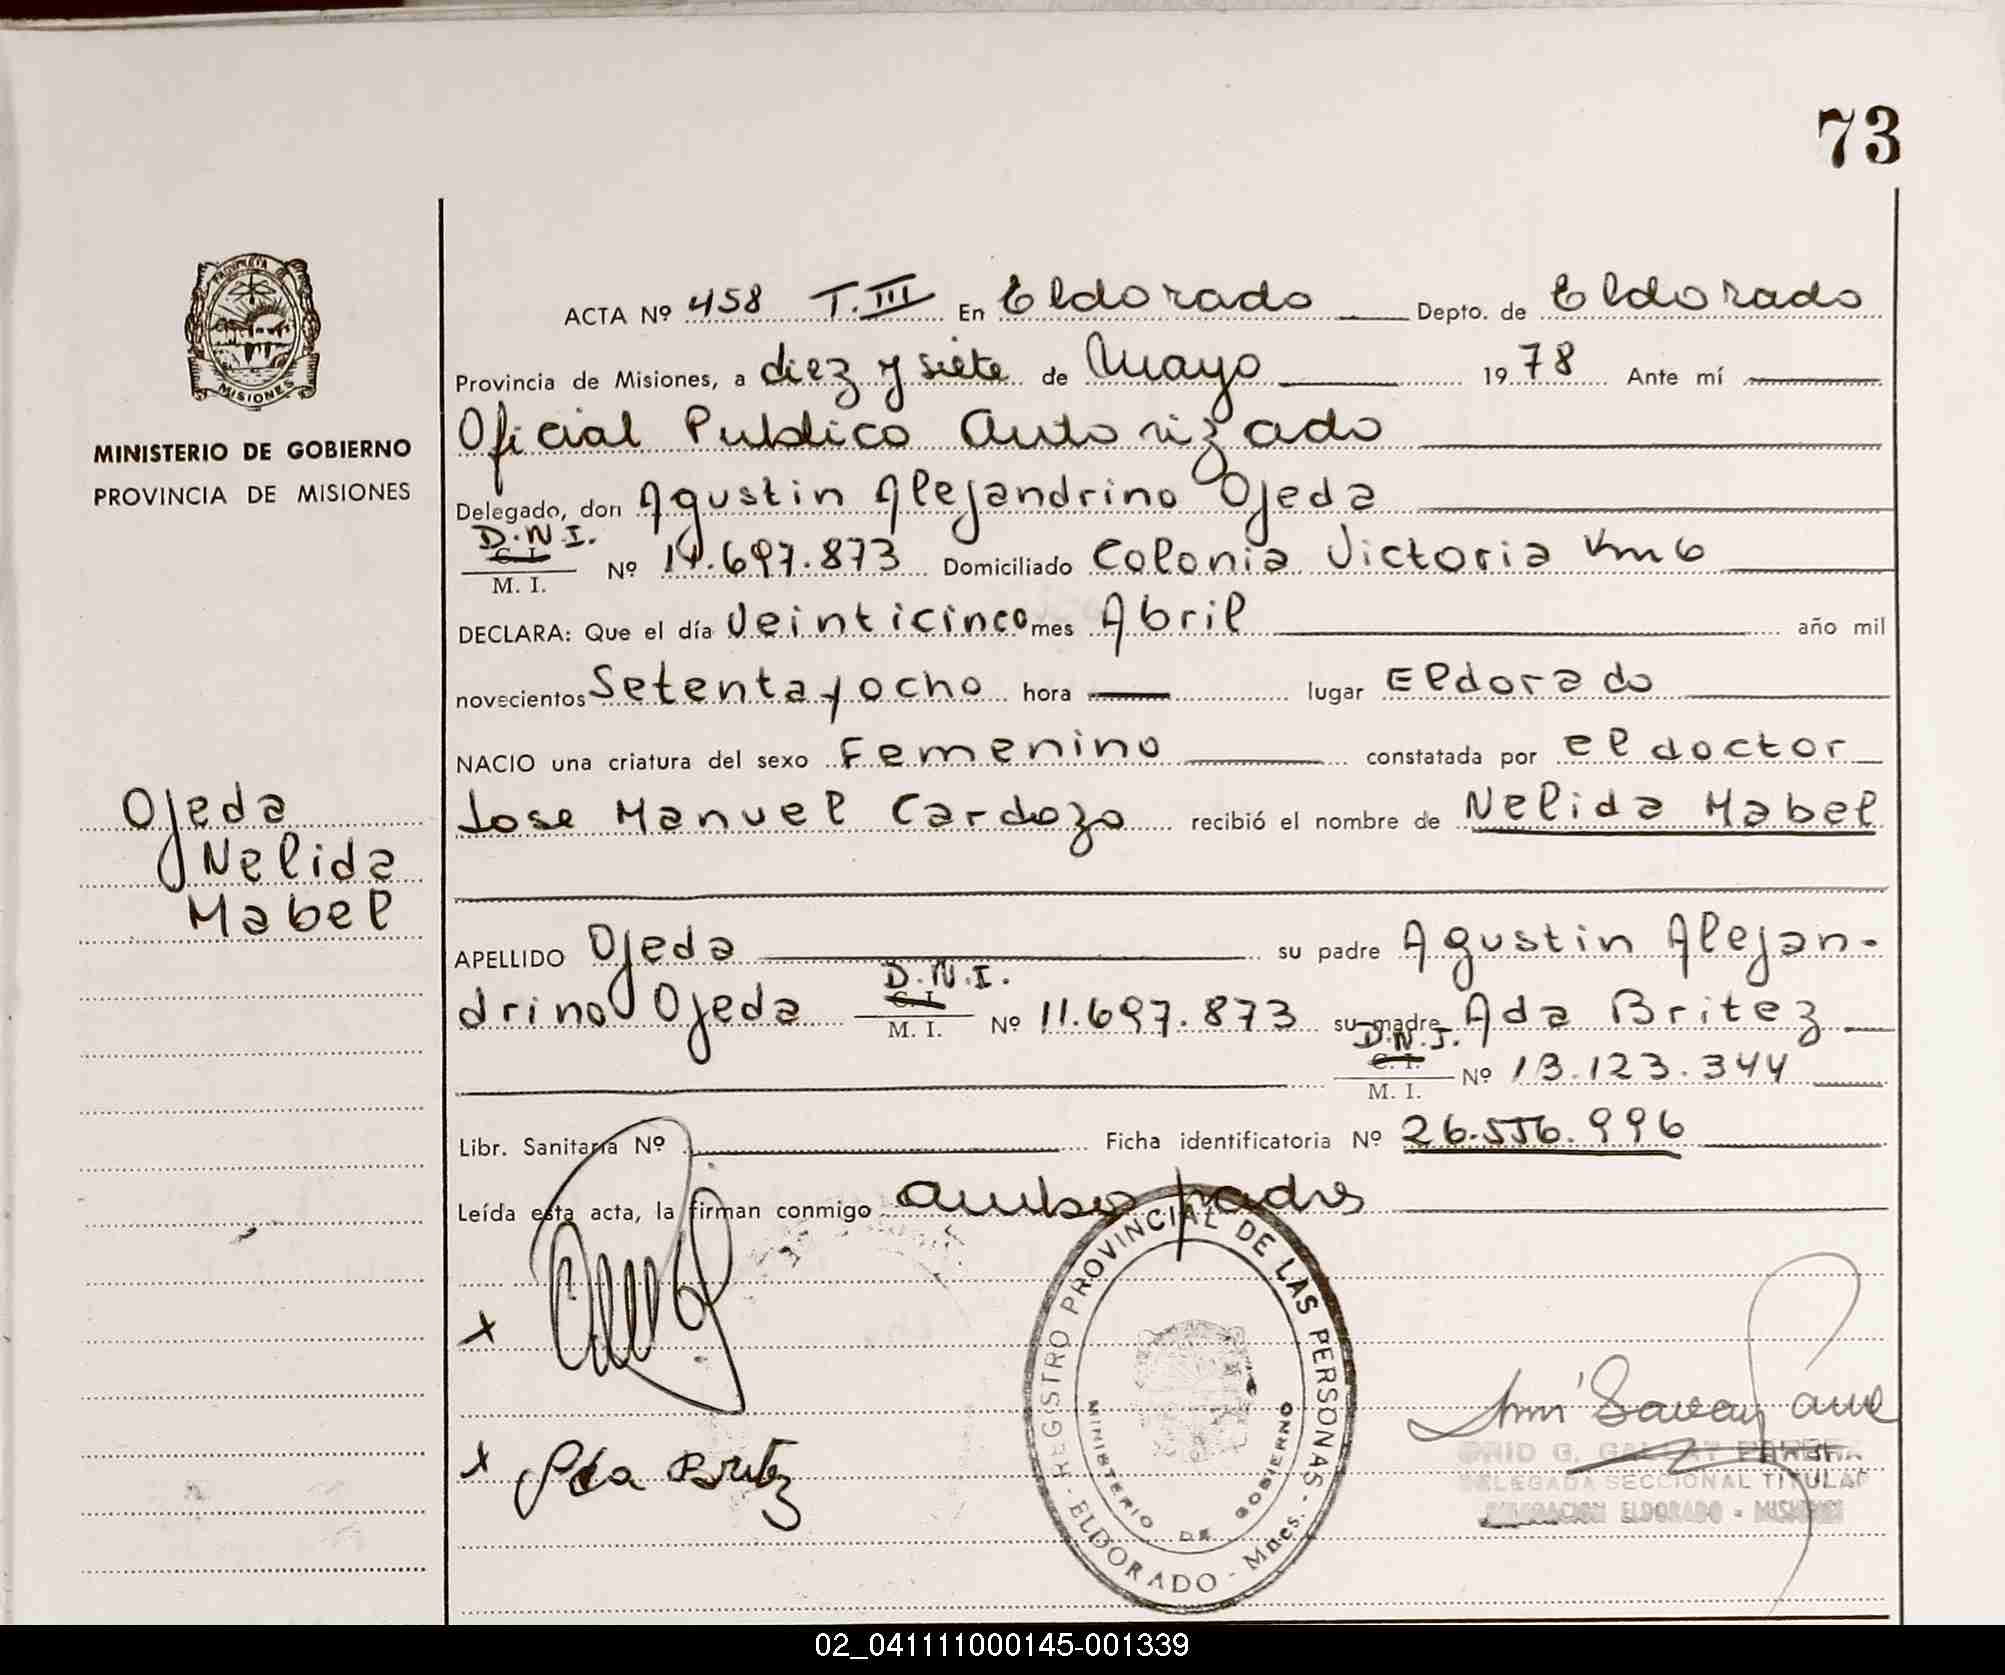 73
PROVINCIA DE
MISIONES
MINISTERIO DE GOBIERNO
PROVINCIA DE MISIONES
ACTA Nº 458 T.III En Eldorado Depto. de Eldorado
Provincia de Misiones, a diez y siete de Mayo 1978 Ante mí
Oficial Publico Autorizado
Delegado, don Agustin Alejandrino Ojeda
D.N.I.
C. I.
M. I. Nº 14.697.873 Domiciliado Colonia Victoria Km 6
DECLARA: Que el día Veinticinco mes Abril año mil
novecientos Setenta y ocho hora lugar Eldorado
NACIO una criatura del sexo Femenino constatada por el doctor
Jose Manuel Cardozo recibió el nombre de Nelida Mabel
Ojeda
Nelida
Mabel
APELLIDO Ojeda su padre Agustin Alejan-
drino Ojeda D.N.I. C. I. M. I. Nº 11.697.873 su madre Ada Britez
D.N.I. C. I. M. I. Nº 13.123.344
Libr. Sanitaria Nº Ficha identificatoria Nº 26.556.996
Leída esta acta, la firman conmigo ambos padres
x
x Ada Britez
REGISTRO PROVINCIAL DE LAS PERSONAS
MINISTERIO DE GOBIERNO
ELDORADO - Mnes.
DELEGADA SECCIONAL TITULAR
DELEGACION ELDORADO - MISIONES
02_041111000145-001339